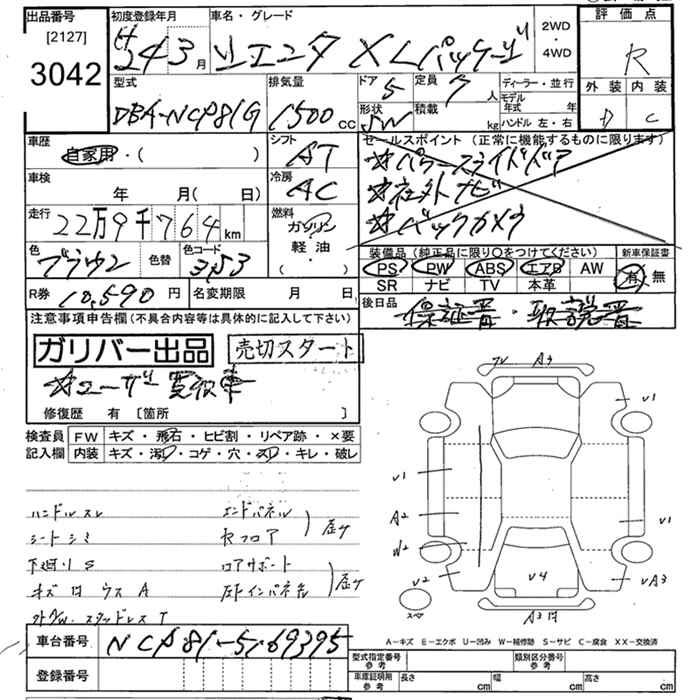 出品番号
[2127]
3042
初度登録年月
24 3 月
車名・グレード
XLパッケージ
2WD
・
4WD
評価点
R
外装 内装
D C
型式
DBA-NCP81G
排気量
1500 CC
ドア
5
定員
7 人
形状
SW
積載
kg
ディーラー・並行
モデル
年式 年
ハンドル 左・右
車歴
自家用・( )
シフト
AT
車検
年 月( 日)
冷房
AC
走行
22万9千764 km
燃料
ガソリン
軽油
( ・ )
色
ブラウン
色替
色コード
3J3
R券
10,590 円
名変期限 月 日
セールスポイント (正常に機能するものに限ります)
☆パワースライドドア
☆社外ナビ
☆バックカメラ
装備品 (純正品に限り○をつけてください)
PS PW ABS エアB AW
SR ナビ TV 本革
新車保証書
有・無
後日品
保証書・取説書
注意事項申告欄 (不具合内容等は具体的に記入して下さい)
ガリバー出品
売切スタート
☆ユーザー買取車
修復歴 有 〔箇所 〕
検査員
記入欄
FW キズ・飛石・ヒビ割・リペア跡・×要
内装 キズ・汚レ・コゲ・穴・スレ・キレ・破レ
ハンドルスレ
シートシミ
下廻りS
キズ ウス A
エンドパネル
リヤフロア
ロアサポート
スタッドレス T
A3
V1
V1
A2
W2
V2
V1
VA3
V4
スペア
A-キズ E-エクボ U-凹み W-補修跡 S-サビ C-腐食 XX-交換済
車台番号
NCP81-5169395
登録番号
型式指定番号
参考
類別区分番号
参考
車庫証明用
参考
長さ cm 幅 cm 高さ cm